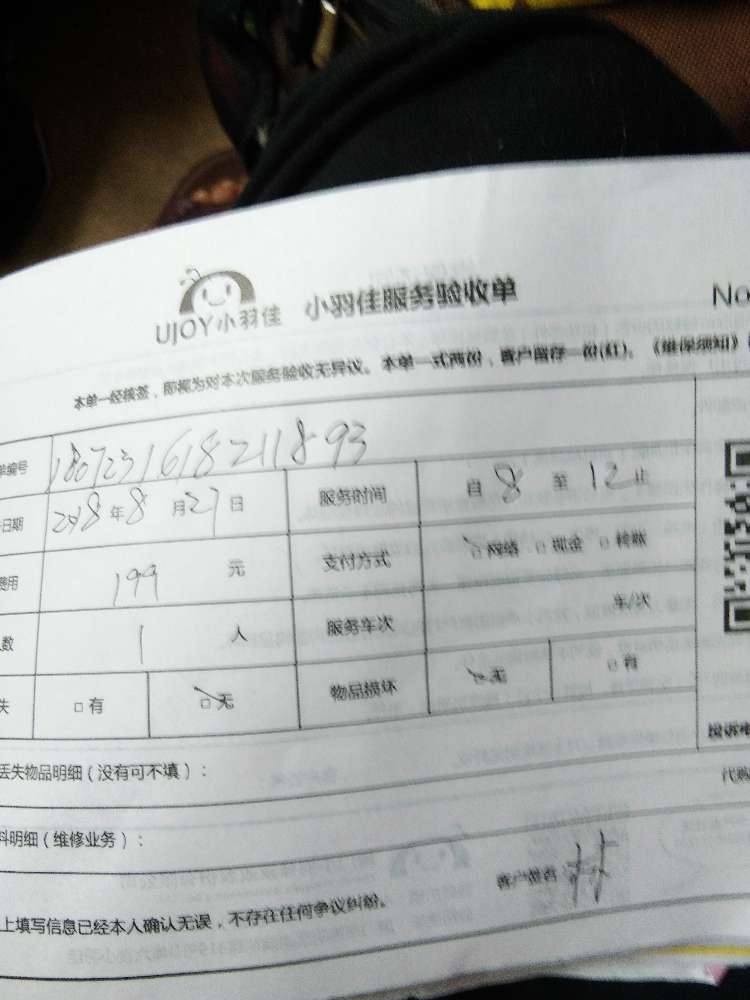 UJOY小羽佳 小羽佳服务验收单 No
本单一经核签，即视为对本次服务验收无异议。本单一式两份，客户留存一份(红)。《维保须知》
单编号 180723161821893
日期 2018年8月27日 服务时间 自8至12止
费用 199元 支付方式 □网络 □现金 □转账
人数 1人 服务车次 车/次
失 □有 □无 物品损坏 □无 □有
投诉电
丢失物品明细（没有可不填）： 代购
料明细（维修业务）：
上填写信息已经本人确认无误，不存在任何争议纠纷。 客户签名